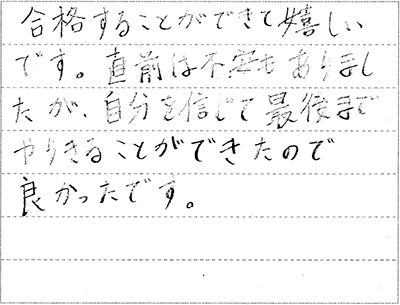 合格することができて嬉しい
です。直前は不安もありまし
たが、自分を信じて最後まで
やりきることができたので
良かったです。